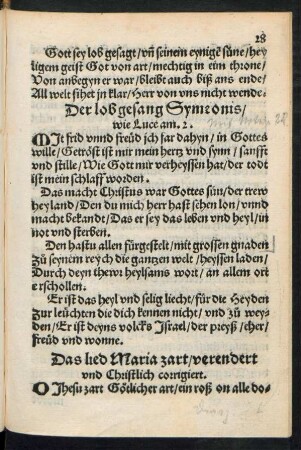 28
Gott sey lob gesagt/ vñ seinem eynigẽ süne/hey
ligem geist Got von art/mechtig in eim throne/
Von anbegyn er war/bleibt auch biß ans ende/
All welt sihet jn klar/Herr von vns nicht wende.
Der lobgesang Symeonis/
wie Luce am .2.
MIt frid vnnd freüd jch far dahyn/in Gottes
wille/Getröst ist mir mein hertz vnd synn/sanfft
vnd stille/Wie Gott mir verheyssen hat/der todt
ist mein schlaff worden.
Das macht Christus war Gottes sün/der trew
heyland/Den du mich herr hast sehen lon/vnnd
macht bekandt/Das er sey das leben vnd heyl/in
not vnd sterben.
Den hastu allen fürgestelt/mit grossen gnaden
Zů seynem reych die gantzen welt/heyssen laden/
Durch deyn thewr heylsams wort/an allem ort
erschollen.
Er ist das heyl vnd selig liecht/für die Heyden
Zur leüchten die dich kennen nicht/vnd zů wey-
den/Er ist deyns volcks Israel/der preyß/eher/
freüd vnd wonne.
Das lied Maria zart/verendert
vnd Christlich corrigiert.
O Jhesu zart Götlicher art/ein roß on alle do-